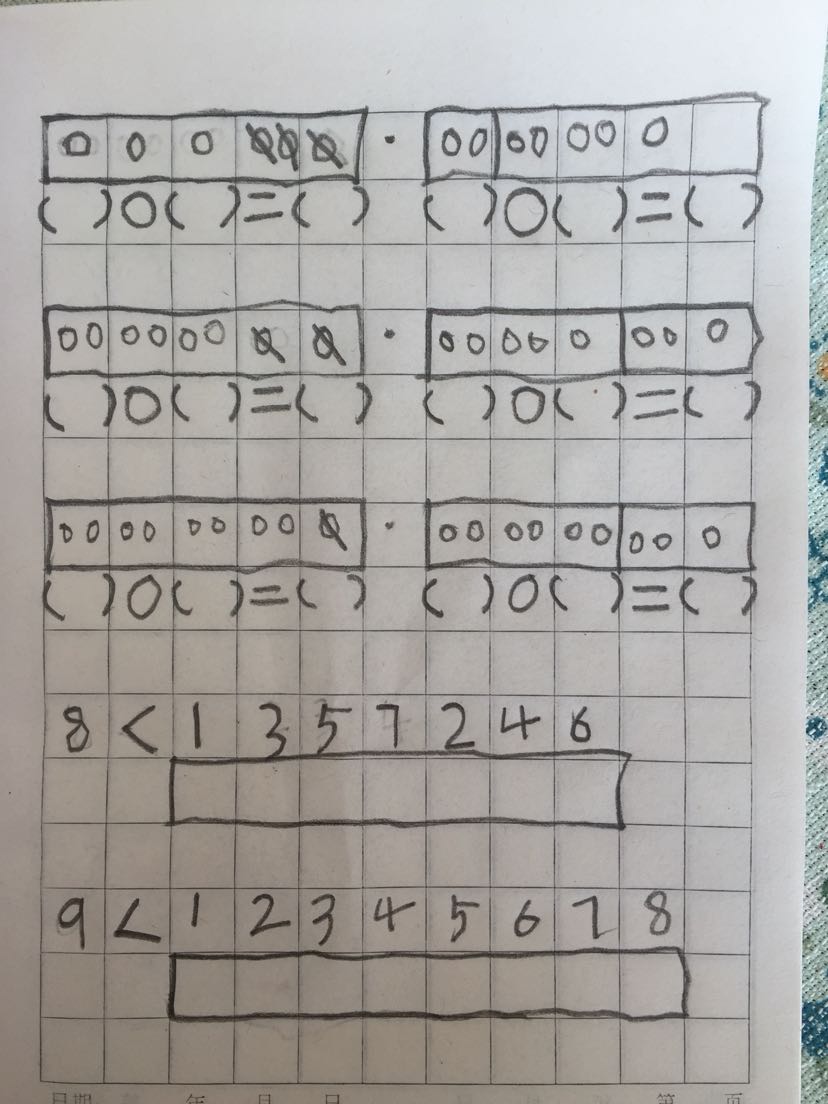 ( )○( )=( ) · ( )○( )=( )
( )○( )=( ) · ( )○( )=( )
( )○( )=( ) · ( )○( )=( )
8 < 1 3 5 7 2 4 6
9 < 1 2 3 4 5 6 7 8
年 月 日 第 页